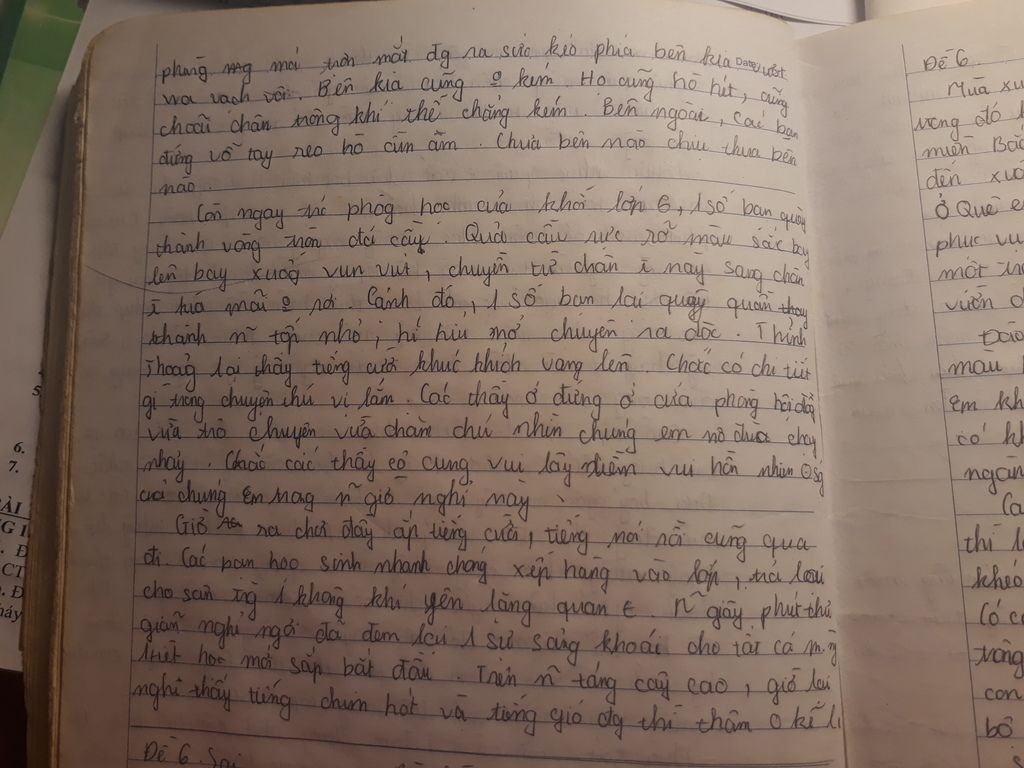 phùng mg mới tròn mắt đg ra sức kéo phía bên kia Date vượt
wa vạch vôi. Bên kia cũng o kém. Họ cũng hò hét, cũng
choãi chân trông khí thế chẳng kém. Bên ngoài, các bạn
đứng vỗ tay reo hò cùn ầm. Chưa bên nào chịu thua bên
nào.
Còn ngay trc phòg học của khối lớp 6, 1 số bạn quây
thành vòng tròn đá cầu. Quả cầu rực rỡ màu sắc bay
lên bay xuốg vun vút, chuyền từ chân i này sang chân
i kia mãi o rơi. Cánh đó, 1 số bạn lại quây quần
thành n~ tốp nhỏ, hí híu mở chuyện ra đọc. Thỉnh
Thoảg lại thấy tiếng cười khúc khích vang lên. Chắc có chi tiết
gì trong chuyện thú vị lắm. Các thầy ở đứng ở cửa phòng hội đồg
vừa trò chuyện vừa chăm chú nhìn chúng em nô đùa chạy
nhảy. Chắc các thầy cô cung vui lây niềm vui hồn nhiên
củả chúng em trong n~ giờ nghỉ này.
Giờ ra chơi đầy ắp tiếng cười, tiếng nói rồi cũng qua
đi. Các bạn học sinh nhanh chóng xếp hàng vào lớp, trả lại
cho sân trg 1 không khí yên lặng quen t. N~ giây phút thư
giãn nghỉ ngơi đã đem lại 1 sự sảng khoái cho tất cả m.n
tiết học mới sắp bắt đầu. Trên n~ tán cây cao, giờ lại
nghe thấy tiếng chim hót và tiếng gió đg thì thầm
Đề 6.
Đề 6.
Mùa xu
miền Bắc
đến xuâ
Ở Quê e
phục vụ
một
vườn
Đào
màu
em kh
có
ngàn
Cà
thì l
khéo
Có c
trông
con
bố
6.
7.